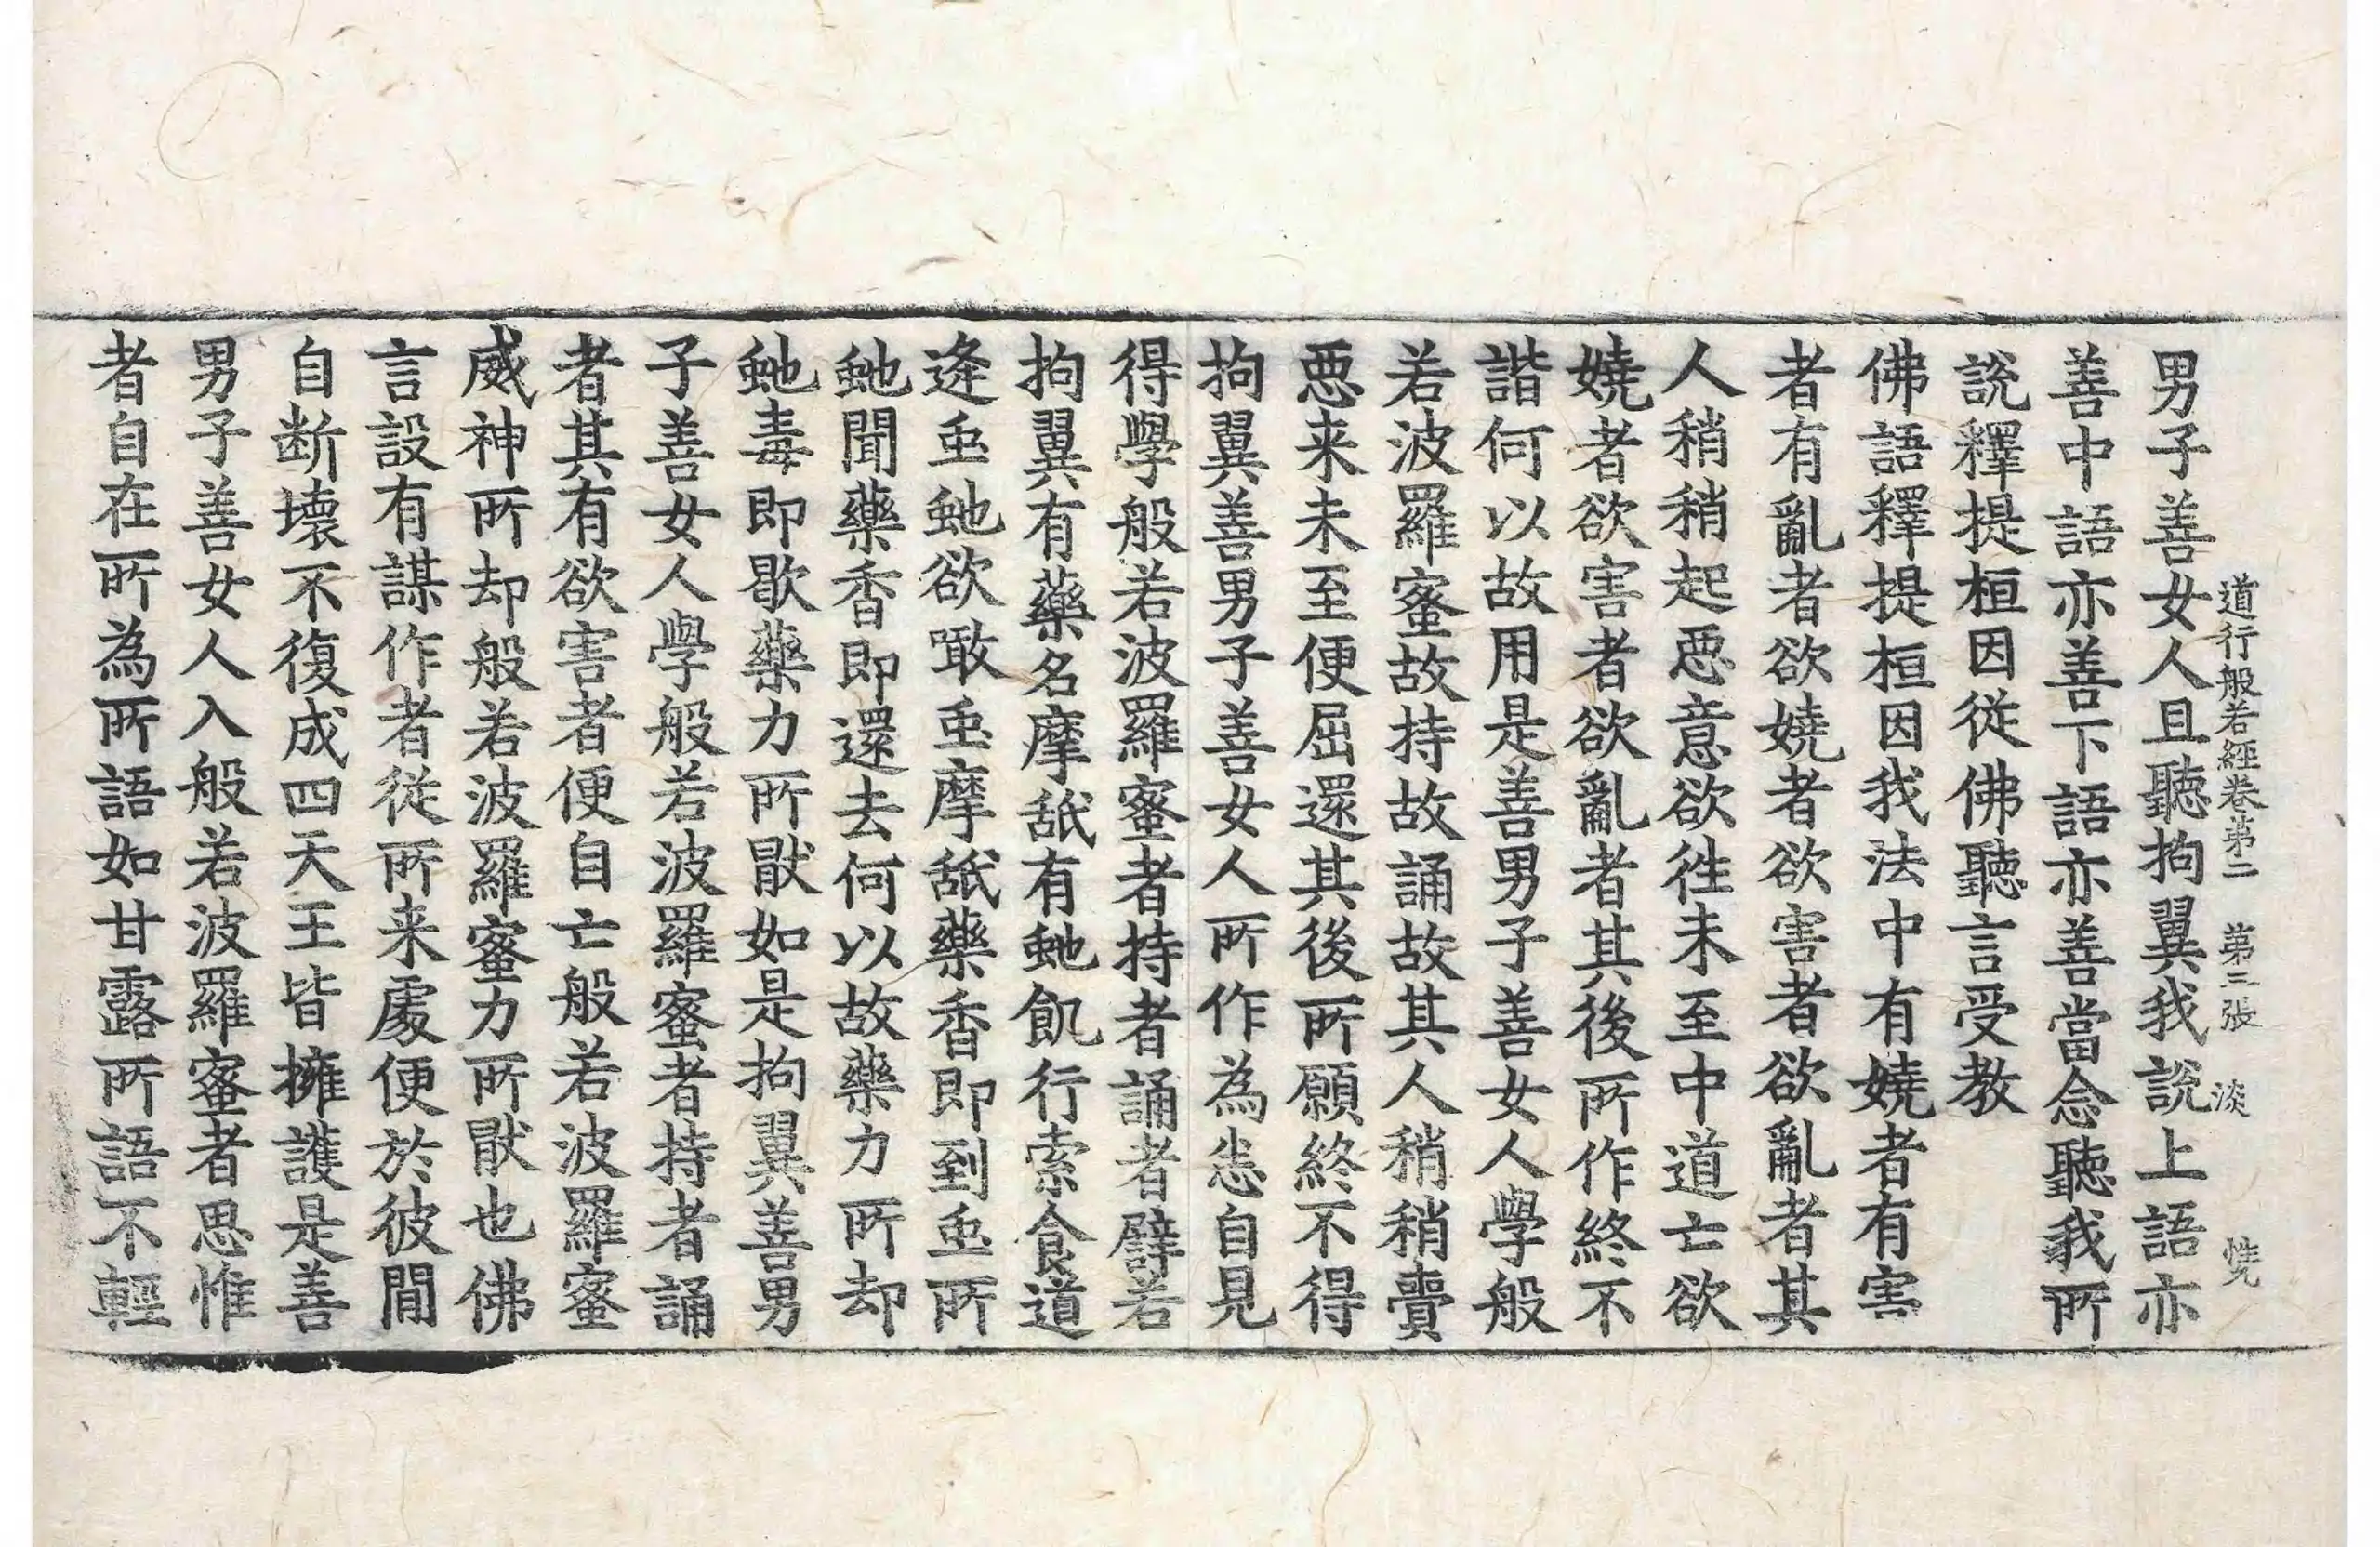 道行般若經卷第二 第三張 淡
男子善女人且聽拘翼我說上語亦
善中語亦善下語亦善當念聽我所
說釋提桓因從佛聽言受教
佛語釋提桓因我法中有嬈者有害
者有亂者欲嬈者欲害者欲亂者其
人稍稍起惡意欲徃未至中道亡欲
嬈者欲害者欲亂者其後所作終不
諧何以故用是善男子善女人學般
若波羅蜜故持故誦故其人稍稍賷
惡来未至便屈還其後所願終不得
拘翼善男子善女人所作為恙自見
得學般若波羅蜜者持者誦者譬若
拘翼有藥名摩舐有虵飢行索食道
逄䖝虵欲噉䖝摩舐藥香即到䖝所
虵聞藥香即還去何以故藥力所却
虵毒即歇藥力所猒如是拘翼善男
子善女人學般若波羅蜜者持者誦
者其有欲害者便自亡般若波羅蜜
威神所却般若波羅蜜力所猒也佛
言設有謀作者從所来處便於彼間
自断壞不復成四天王皆擁護是善
男子善女人入般若波羅蜜者思惟
者自在所為所語如甘露所語不輕